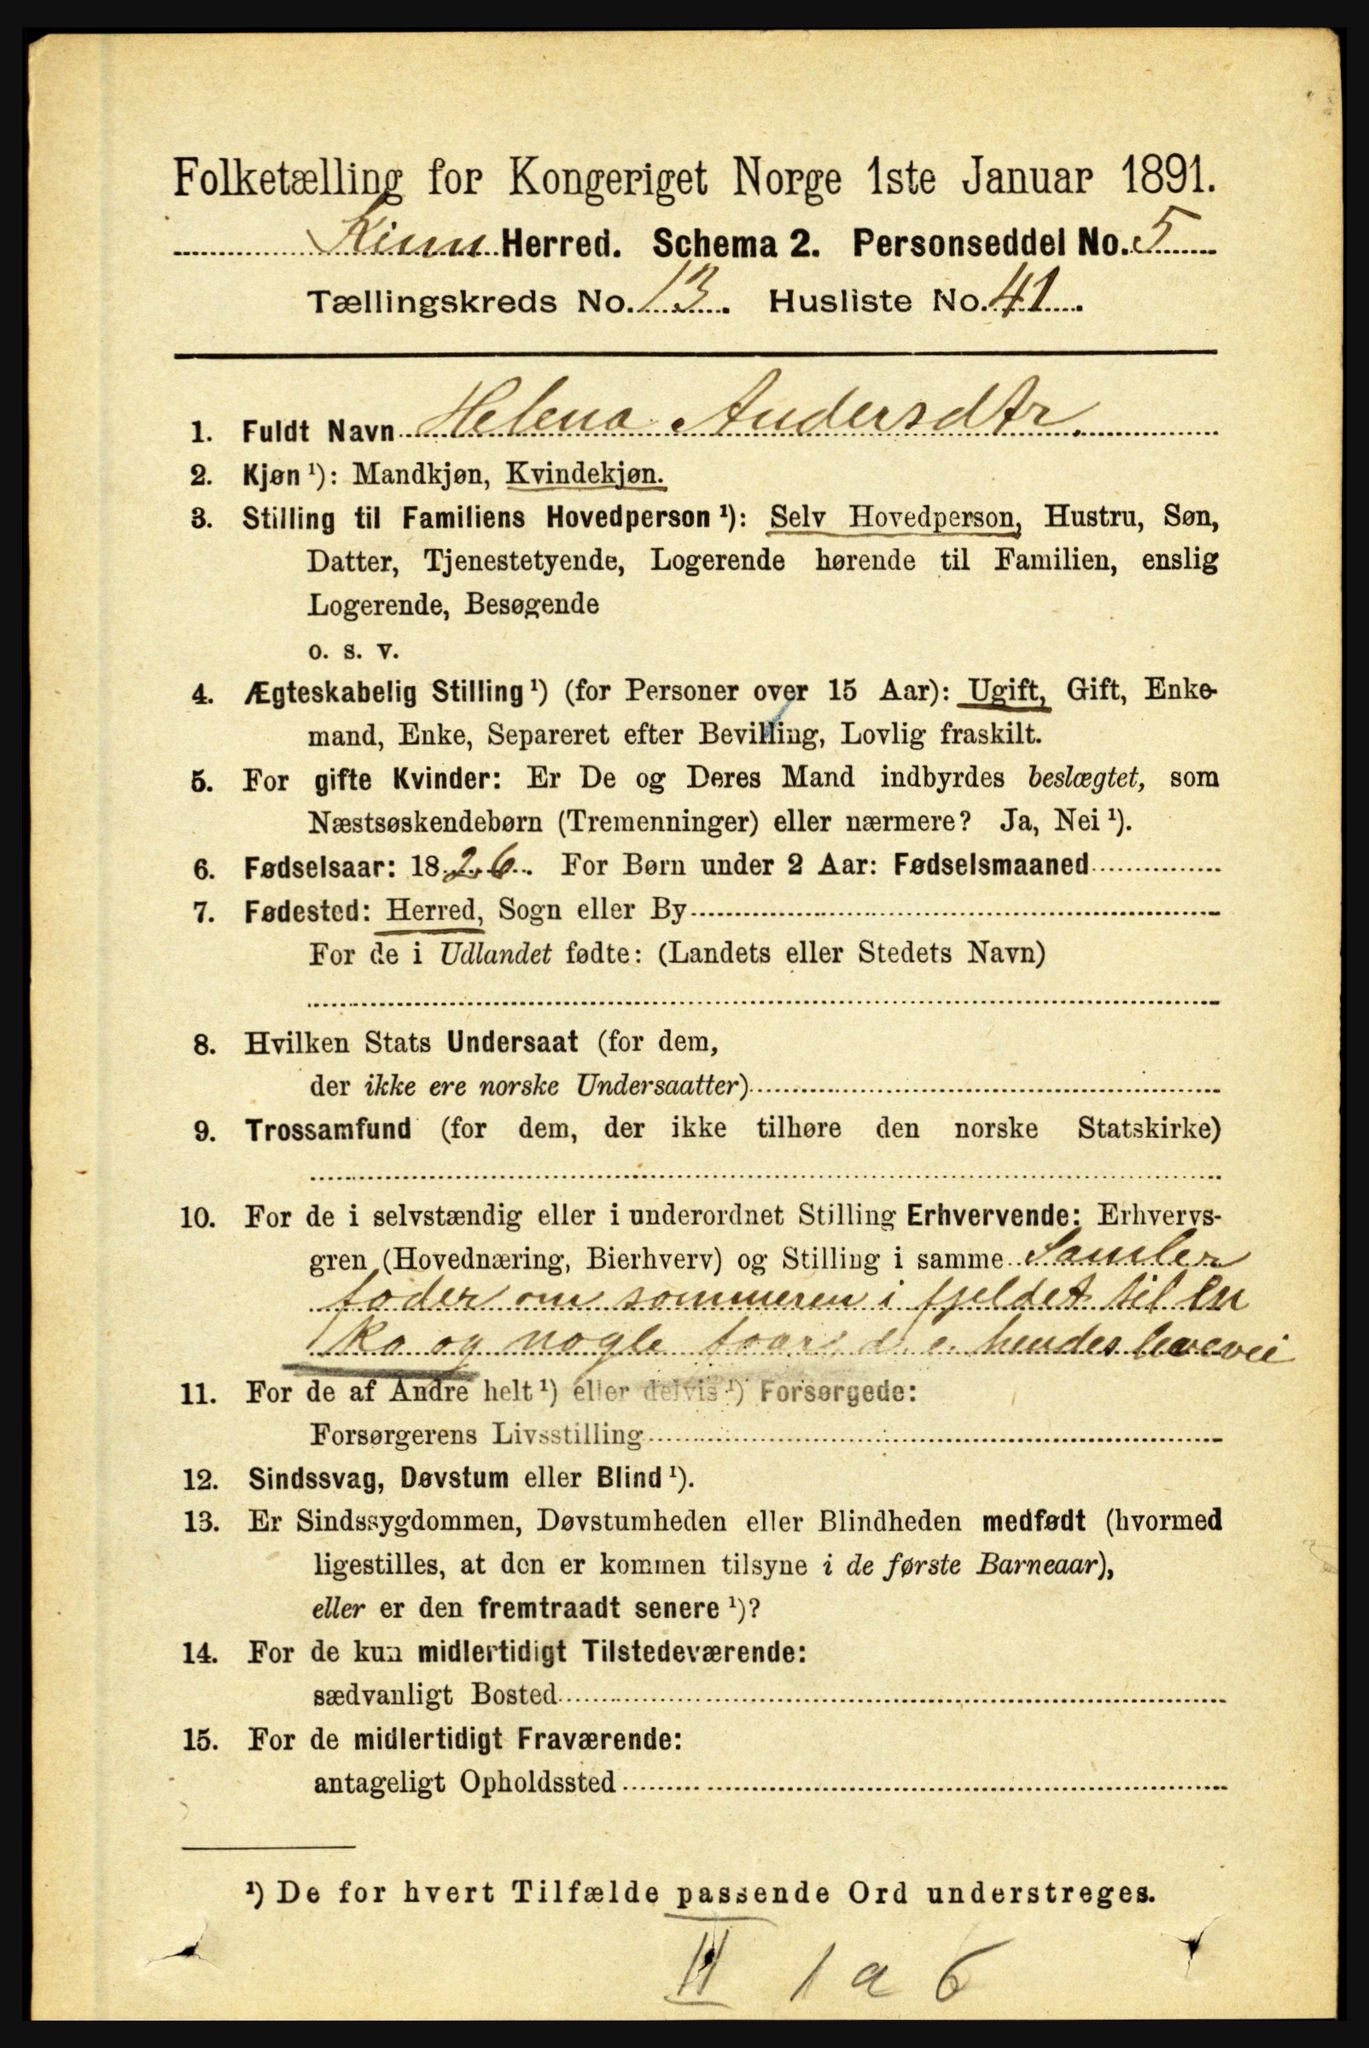 Folketælling for Kongeriget Norge 1ste Januar 1891.
Kinn Herred. Schema 2. Personseddel No. 5
Tællingskreds No. 13. Husliste No. 41.
1. Fuldt Navn Helena Andersdtr.
2. Kjøn ¹): Mandkjøn, Kvindekjøn.
3. Stilling til Familiens Hovedperson ¹): Selv Hovedperson, Hustru, Søn,
Datter, Tjenestetyende, Logerende hørende til Familien, enslig
Logerende, Besøgende
o. s. v.
4. Ægteskabelig Stilling ¹) (for Personer over 15 Aar): Ugift, Gift, Enke-
mand, Enke, Separeret efter Bevilling, Lovlig fraskilt.
5. For gifte Kvinder: Er De og Deres Mand indbyrdes beslægtet, som
Næstsøskendebørn (Tremenninger) eller nærmere? Ja, Nei ¹).
6. Fødselsaar: 1826. For Børn under 2 Aar: Fødselsmaaned
7. Fødested: Herred, Sogn eller By
For de i Udlandet fødte: (Landets eller Stedets Navn)
8. Hvilken Stats Undersaat (for dem,
der ikke ere norske Undersaatter)
9. Trossamfund (for dem, der ikke tilhøre den norske Statskirke)
10. For de i selvstændig eller i underordnet Stilling Erhvervende: Erhvervs-
gren (Hovednæring, Bierhverv) og Stilling i samme Samler
foder om sommeren i fjeldet til en
ko og nogle faar, d. e. hendes levevei
11. For de af Andre helt ¹) eller delvis ¹) Forsørgede:
Forsørgerens Livsstilling
12. Sindssvag, Døvstum eller Blind ¹).
13. Er Sindssygdommen, Døvstumheden eller Blindheden medfødt (hvormed
ligestilles, at den er kommen tilsyne i de første Barneaar),
eller er den fremtraadt senere ¹)?
14. For de kun midlertidigt Tilstedeværende:
sædvanligt Bosted
15. For de midlertidigt Fraværende:
antageligt Opholdssted
¹) De for hvert Tilfælde passende Ord understreges.
II 1 a 6